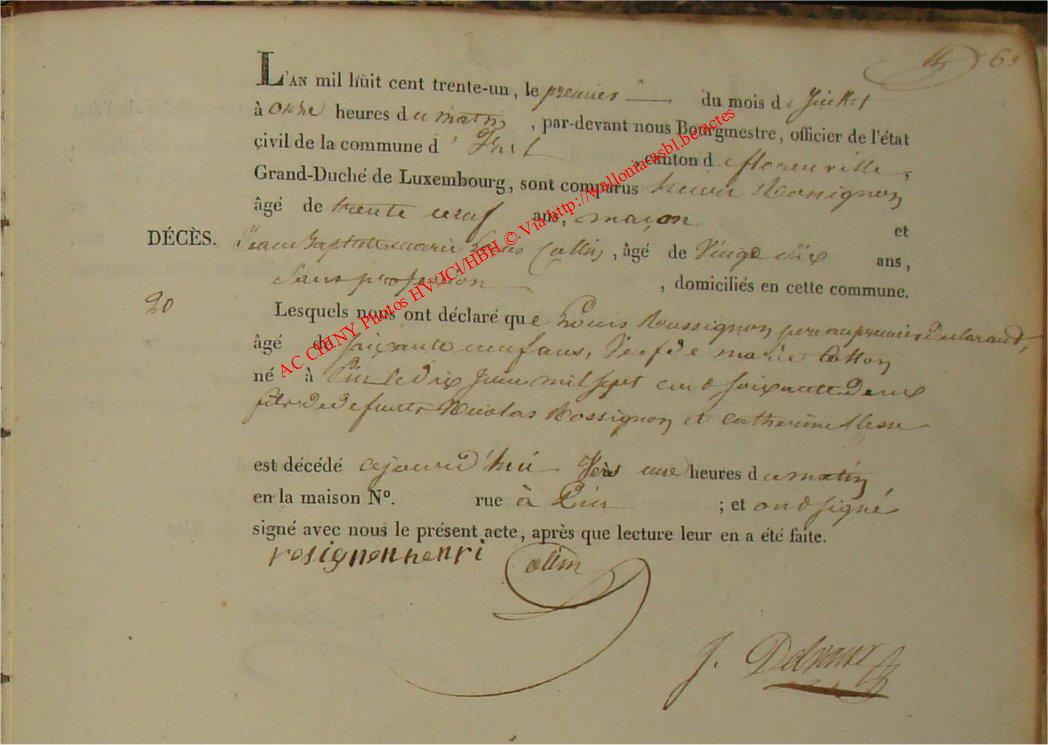 6
L'AN mil huit cent trente-un, le premier du mois de Juillet
à onze heures du matin, par-devant nous Bourgmestre, officier de l'état
civil de la commune d' , canton de florenville,
Grand-Duché de Luxembourg, sont comparus henri Rossignon
âgé de trente neuf ans, maçon et
DÉCÈS. Jean Baptiste marie Louis Collin, âgé de Vingt Six ans,
Sans profession, domiciliés en cette commune.
20
Lesquels nous ont déclaré que Louis Rossignon pere au premier declarant,
âgé de soixante neuf ans, Veuf de marie
né à Pin le dix Juin mil sept cent soixante deux
fils de defunts Nicolas Rossignon et catherine
est décédé aujourd'hui Vers une heures du matin
en la maison N°. rue à Pin ; et ont signé
signé avec nous le présent acte, après que lecture leur en a été faite.
rosignon henri Collin
J.
AC CHINY Photos HV/JCl/HBH © Via http://walloniaasbl.be/actes